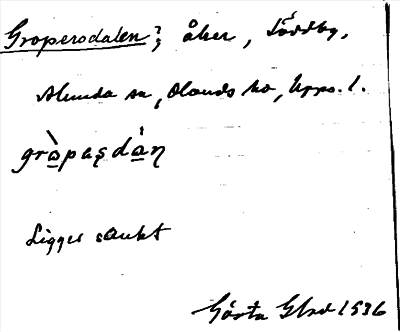 Groperodalen?; åker, Söddby,
Alunda sn, Olands hd, Upps. l.
gròpaṣdáṇ
Ligger sankt
Gösta Glad 1936